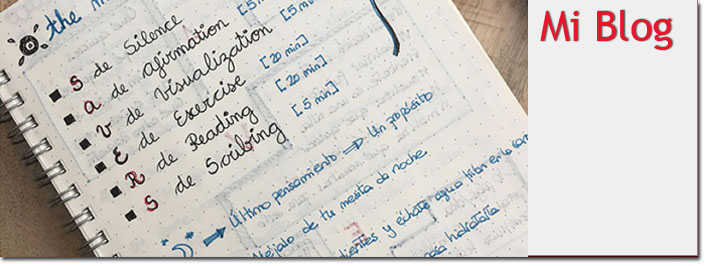 the m
S de Silence [5
a de afirmation [5 m
V de Visualization
E de Exercise [20 min]
R de Reading [20 min]
S de Scribing [5 min]
Último pensamiento ⇒ Un propósito
Aléjalo de tu mesita de noche.
dientes y échate agua
hidratarte
Mi Blog